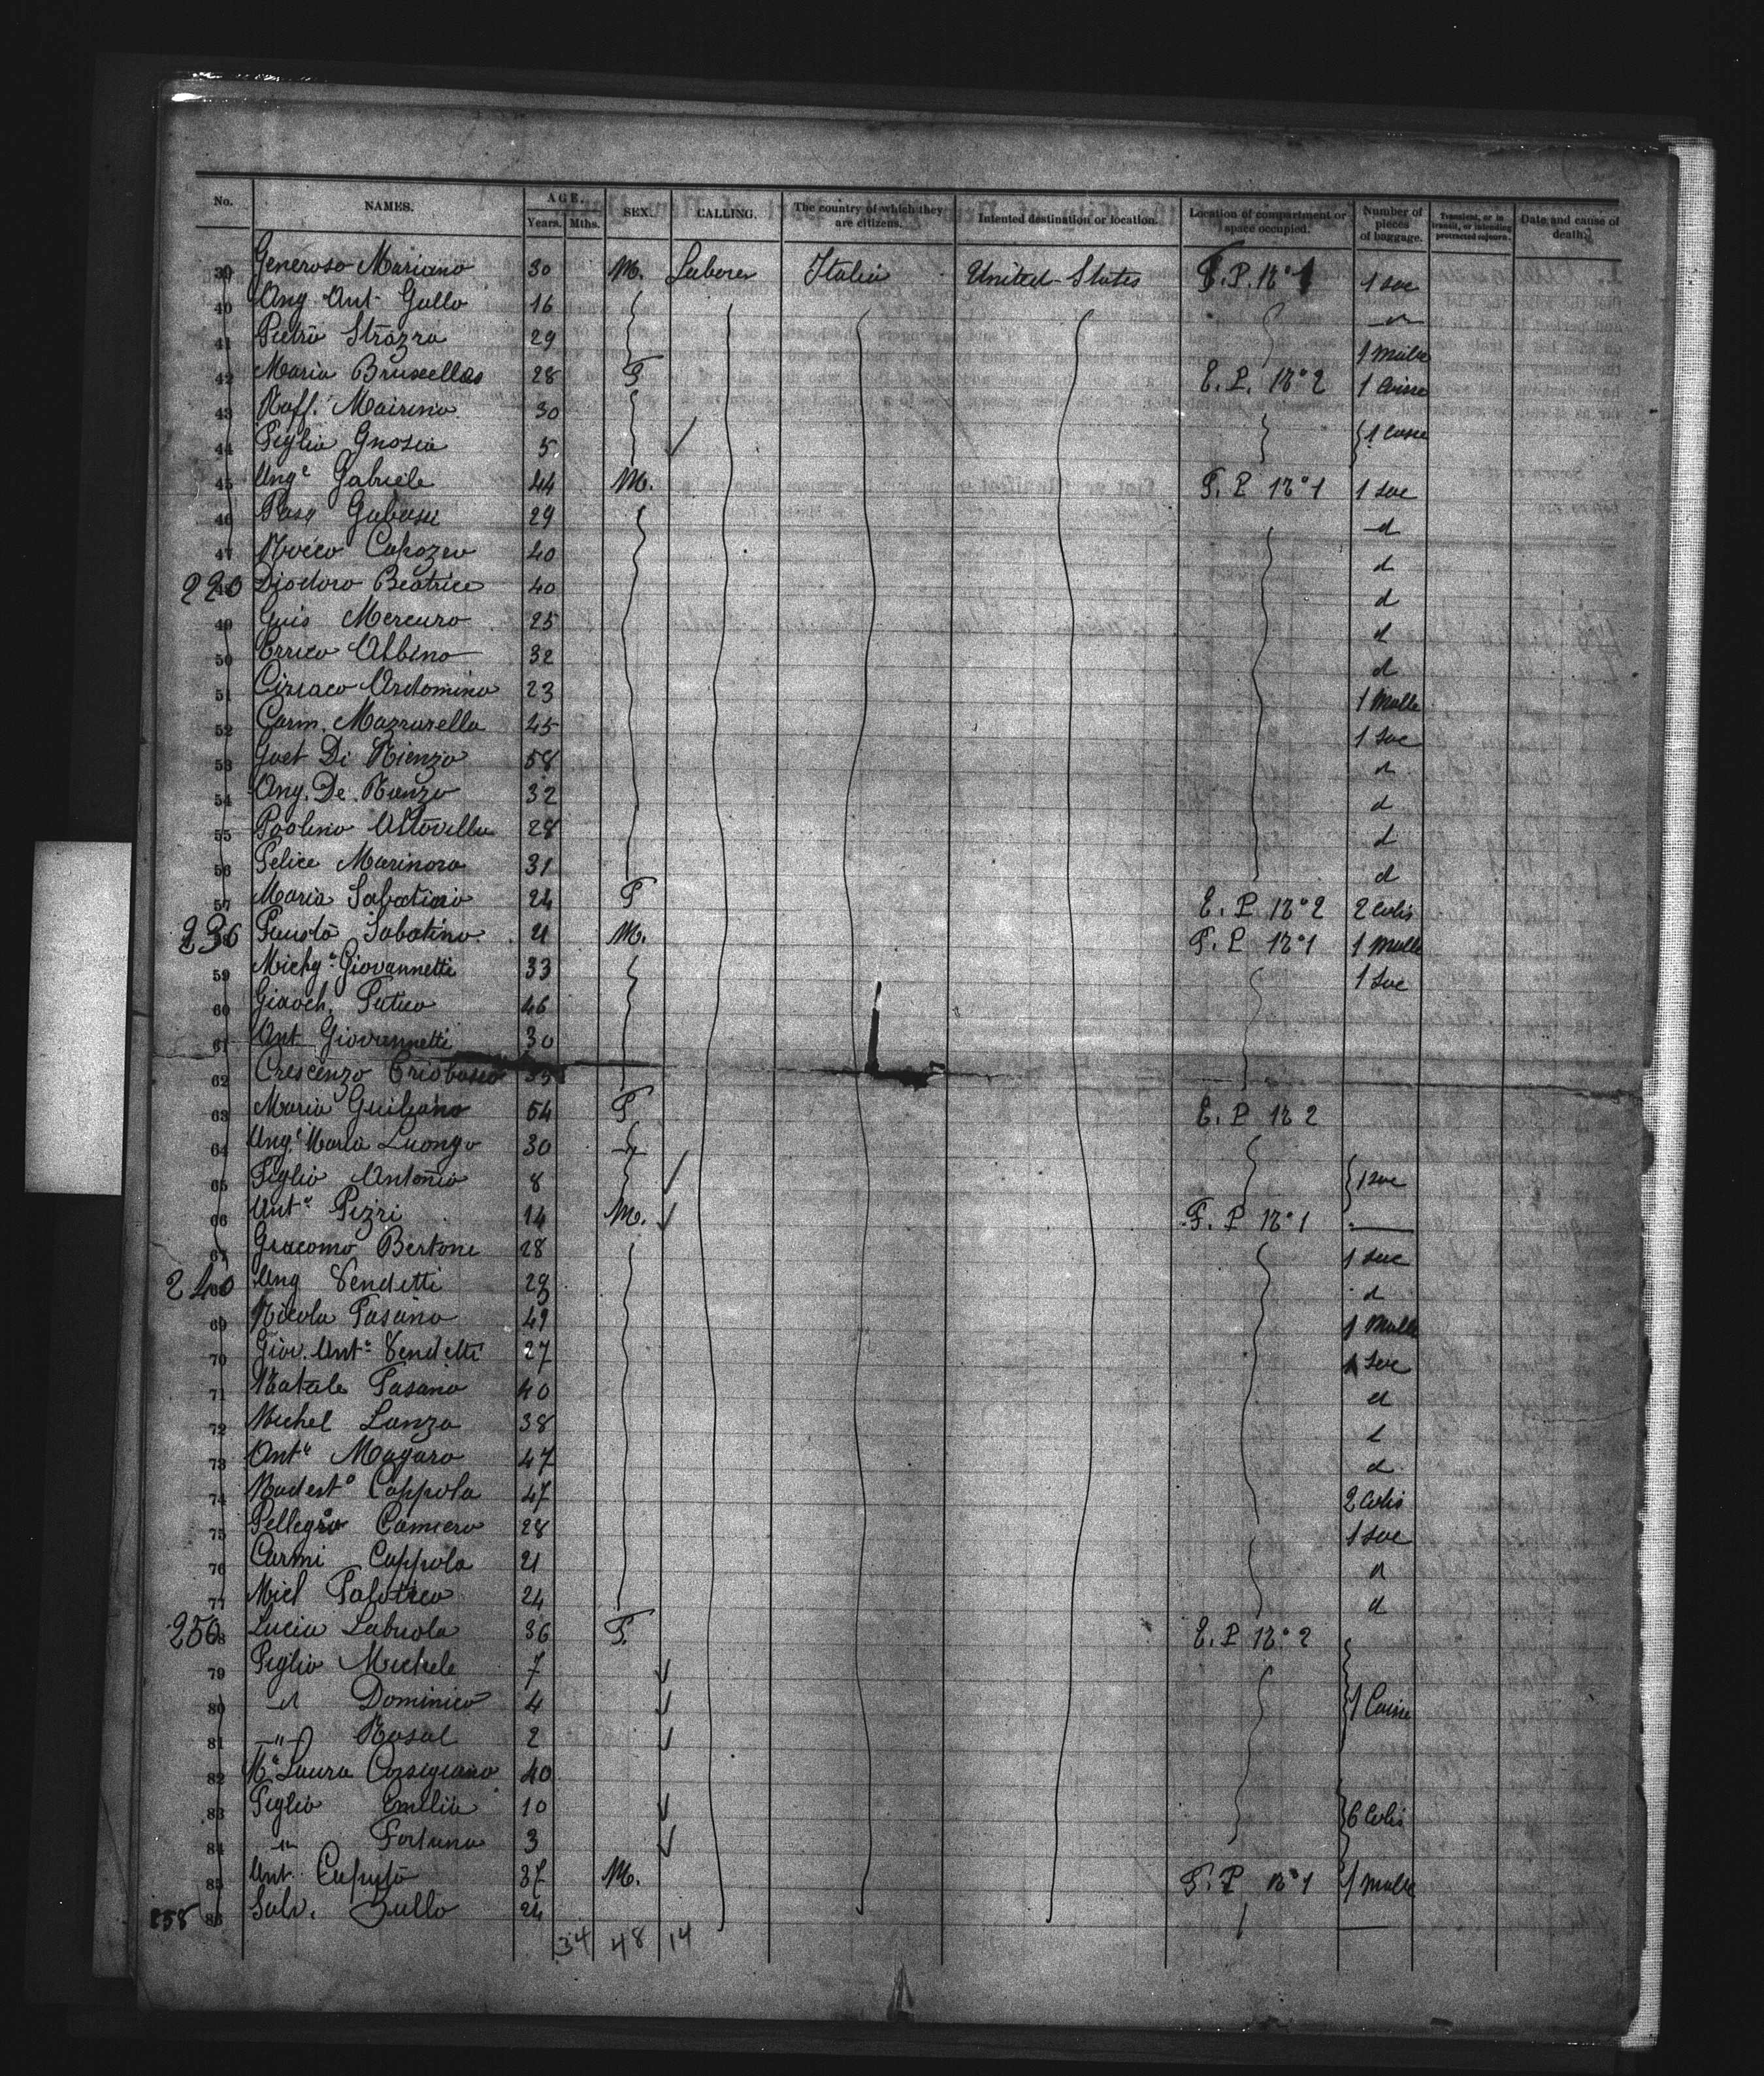 No. NAMES. AGE. Years. Mths. SEX. CALLING. The country of which they are citizens. Intented destination or location. Location of compartment or space occupied. Number of pieces of baggage. Transient, or in transit, or intending protracted sojourn. Date and cause of death.
39 Generoso Mariano 30 M. Laborer Italia United-States F.P. N° 1 1 Sac
40 Ang Ant Gallo 16
41 Pietro Strazza 29 1 Malle
42 Maria Bruxellas 28 F E.P. N° 2 1 Caisse
43 Raff. Mairino 30
44 Figlia 5 1 Caisse
45 Ang Gabriele 44 M. F.P N° 1 1 Sac
46 Pasq 29 d
47 Rocco Capozzo 40 d
220 48 Diodoro Beatrice 40 d
49 Guis Mercuro 25 d
50 Errico Albino 32 d
51 Ciriaco Ardomino 23 1 Malle
52 Carm. Mazzarella 45 1 Sac
53 Gaet Di Rienzo 58 d
54 Ang. De Rienzo 32 d
55 Paolino Altovilla 28 d
56 Felice Marinora 31 d
57 Maria Sabatino 24 F E.P N° 2 2 Colis
236 58 Fausto Sabatino 21 M. F.P N° 1 1 Malle
59 Giovannetti 33 1 Sac
60 Gioach. 46
61 Ant Giovannetti 30
62 Crescenzo
63 Maria Guiliano 54 F E.P N 2
64 Ang Maria Luongo 30
65 Figlio Antonio 8 1 Sac
66 Ant Pizzi 14 M. F.P N° 1
67 Giacomo Bertone 28 1 Sac
240 68 Ang Vendetti 29 d
69 Nicola Fasano 49 1 Malle
70 Giov. Ant Vendetti 27 1 Sac
71 Natale Fasano 40 d
72 Michel Lanza 38 d
73 Ant Magaro 47 d
74 Modest° Coppola 47 2 Colis
75 Pellegro Camiero 28 1 Sac
76 Carmi Coppola 21 d
77 Mich 24 d
250 78 Lucia Labriola 36 F. E.P N° 2
79 Figlio Michele 7
80 d Dominico 4 1 Caisse
81 " Rosal 2
82 Mª Laura Corsigiano 40
83 Figlio Emilia 10 6 Colis
84 Fortuna 3
85 Ant. Caputo 37 M. F.P N° 1 1 Malle
258 86 Salv. Zullo 24
34 48 14